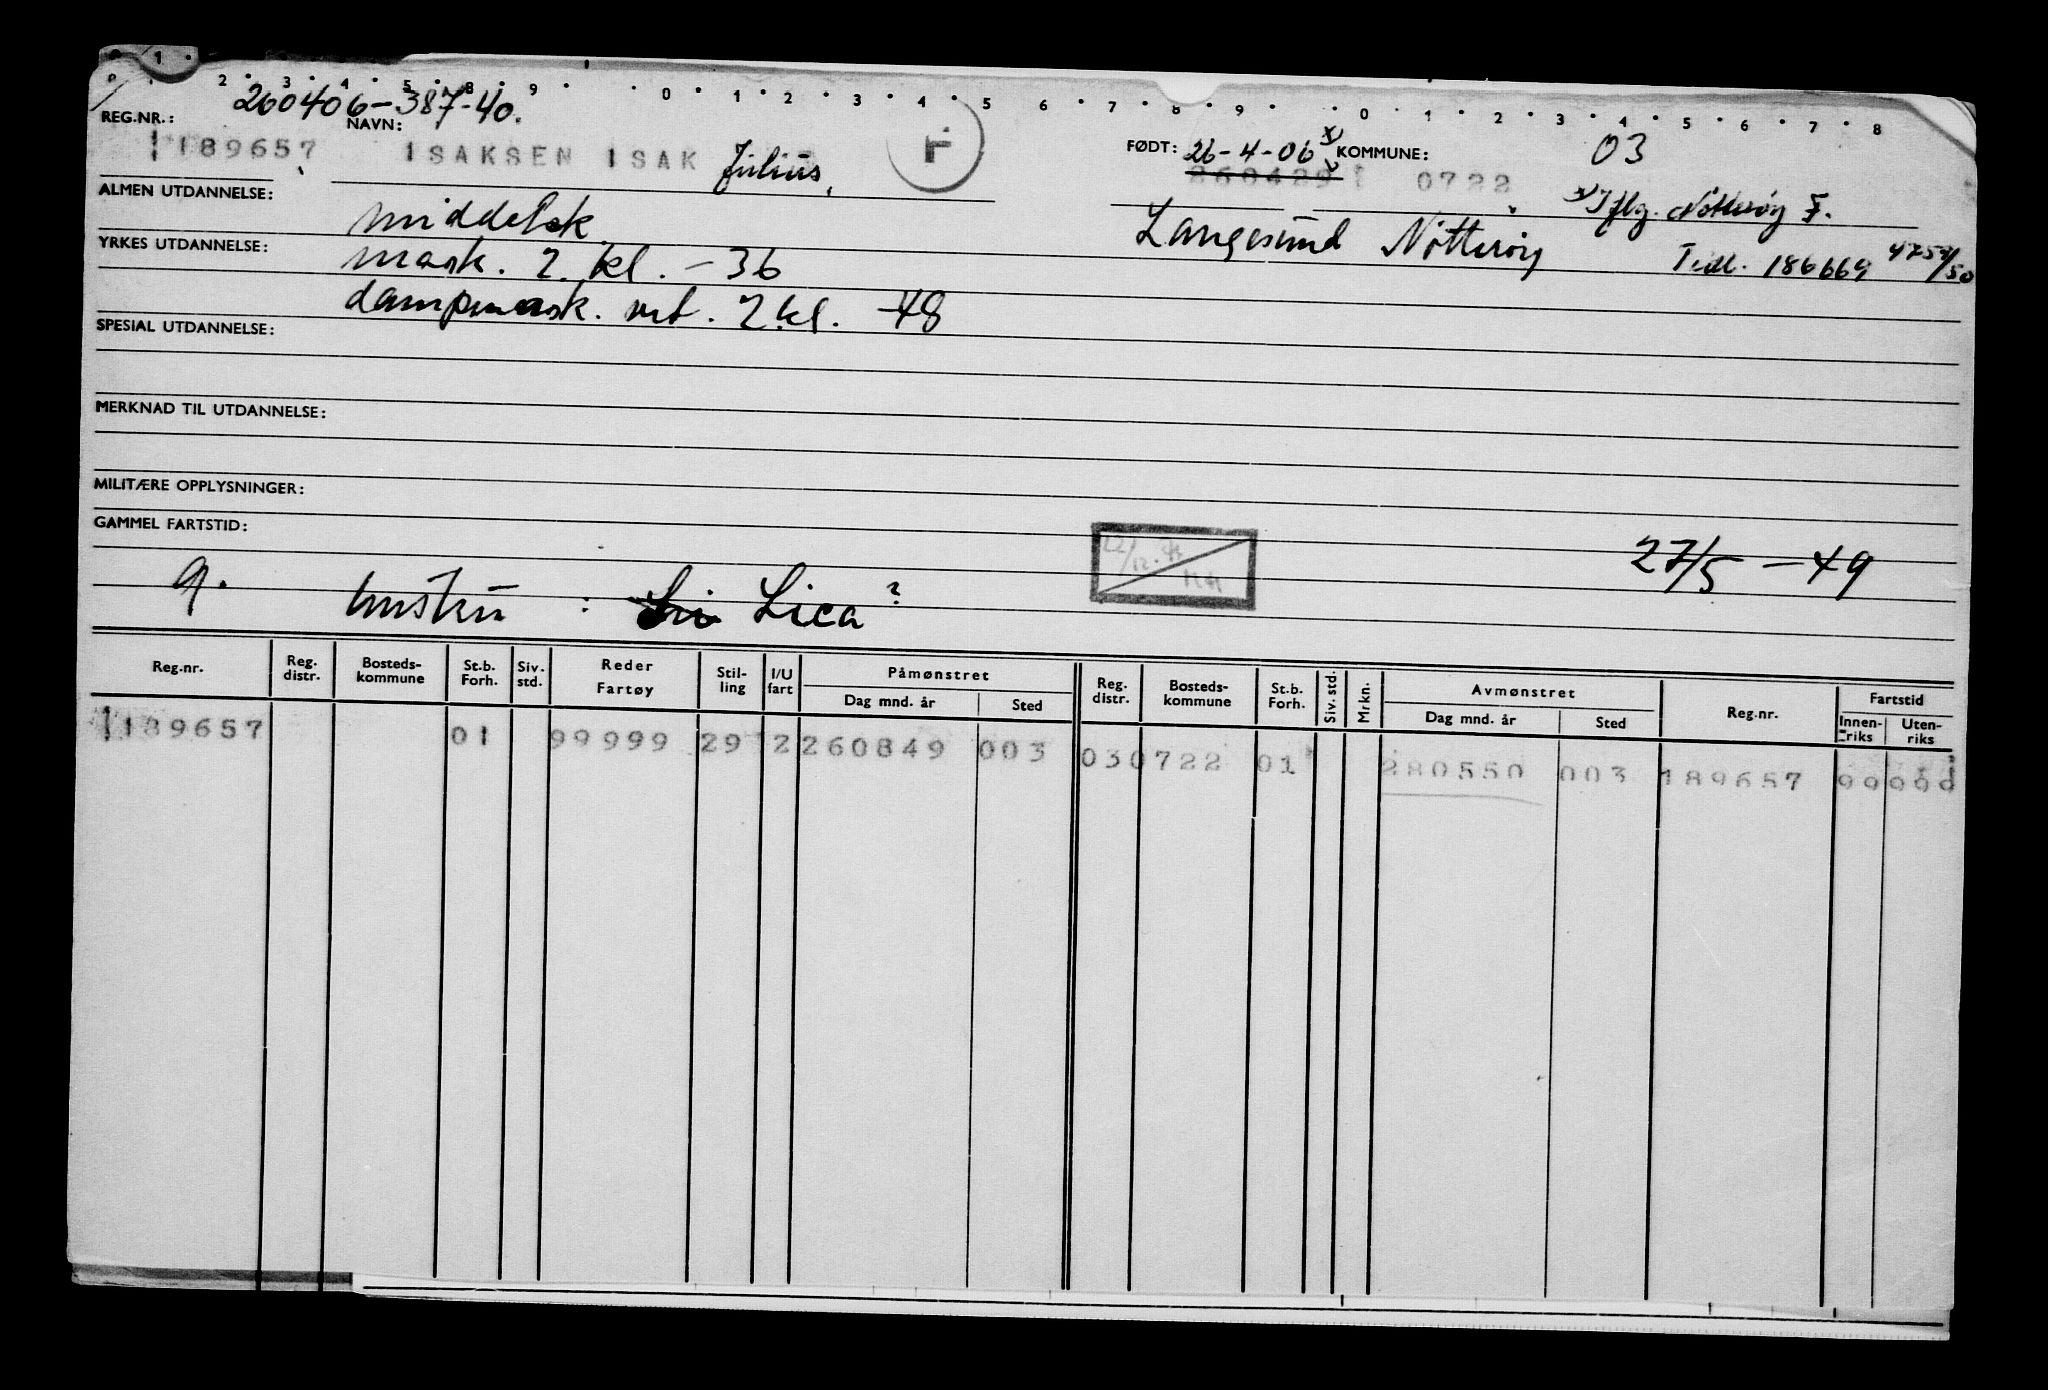 0 1
0 2 3 4 5 8 9 0 1 2 3 4 5 6 7 8 9 0 1 2 3 4 5 6 7 8
260406-387-40.
REG.NR.: NAVN: FØDT: 26-4-06 x) KOMMUNE: 03
189657 ISAKSEN ISAK Julius, F 260429 0722
x) Iflg. Nøtterøy F.
4752/50
ALMEN UTDANNELSE: middelsk. Langesund Nøtterøy Tidl. 186669
YRKES UTDANNELSE: mask. 2. kl. - 36
dampmask. 2 kl. -48
SPESIAL UTDANNELSE:
MERKNAD TIL UTDANNELSE:
MILITÆRE OPPLYSNINGER:
GAMMEL FARTSTID:
22/12
27/5 - 49
g. hustru : Lica?
Reg.nr. Reg. distr. Bosteds-kommune St.b. Forh. Siv. std. Reder Fartøy Stil-ling I/U fart Påmønstret Dag mnd. år Sted Reg. distr. Bosteds-kommune St.b. Forh. Siv. std. Mrkn. Avmønstret Dag mnd. år Sted Reg.nr. Fartstid Innen-riks Uten-riks
189657 01 99999 29 2 260849 003 03 0722 01 280550 003 189657